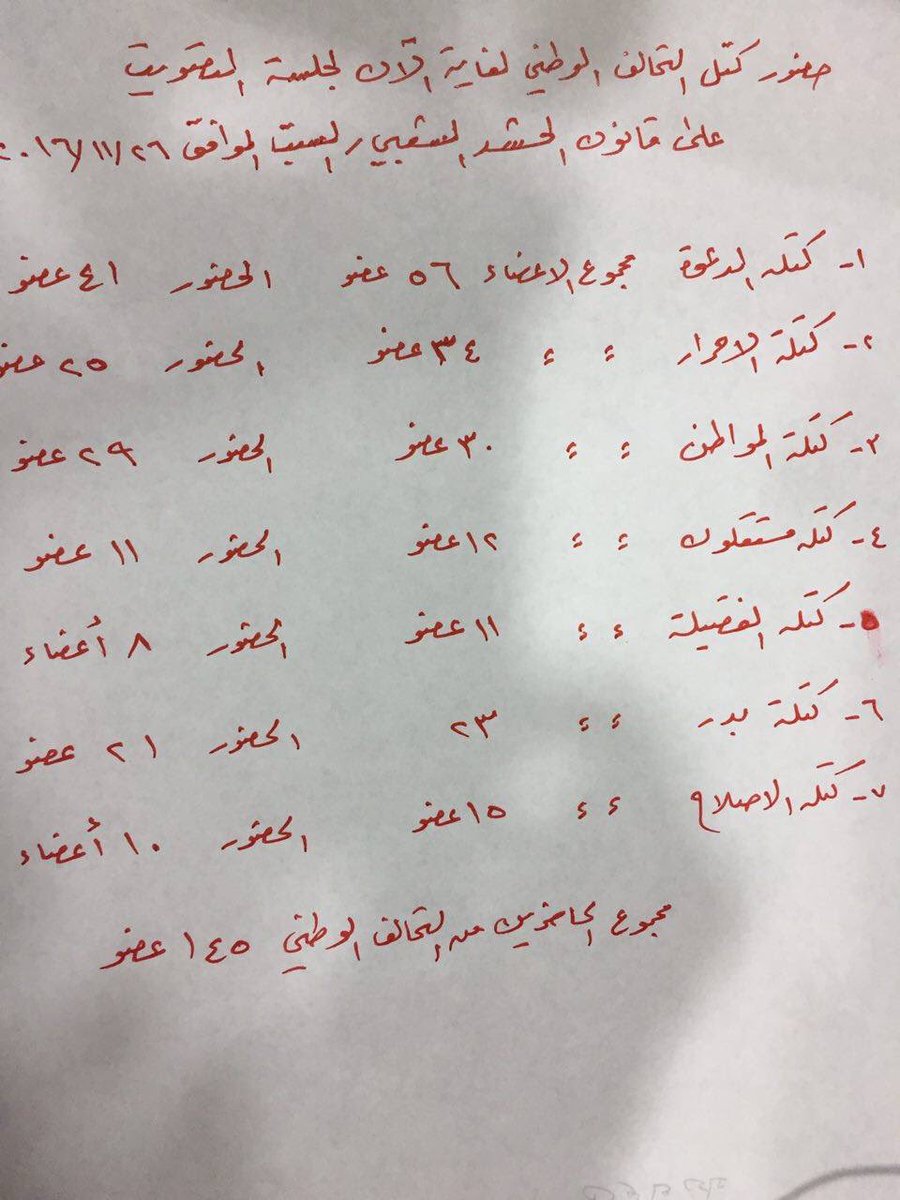 حضور كتل التحالف الوطني لغاية الآن لجلسة التصويت
على قانون الحشد الشعبي / السبت الموافق ٢٠١٦/١١/٢٦
١- كتلة الدعوة مجموع الاعضاء ٥٦ عضو الحضور ٤١ عضو
٢- كتلة الاحرار ؛ ؛ ٣٤ عضو الحضور ٢٥ عضو
٣- كتلة المواطن ؛ ؛ ٣٠ عضو الحضور ٢٩ عضو
٤- كتله مستقلون ؛ ؛ ١٢ عضو الحضور ١١ عضو
٥- كتله الفضيلة ؛ ؛ ١١ عضو الحضور ٨ أعضاء
٦- كتلة بدر ؛ ؛ ٢٣ الحضور ٢١ عضو
٧- كتله الاصلاح ؛ ؛ ١٥ عضو الحضور ١٠ أعضاء
مجموع الحاضرين من التحالف الوطني ١٤٥ عضو